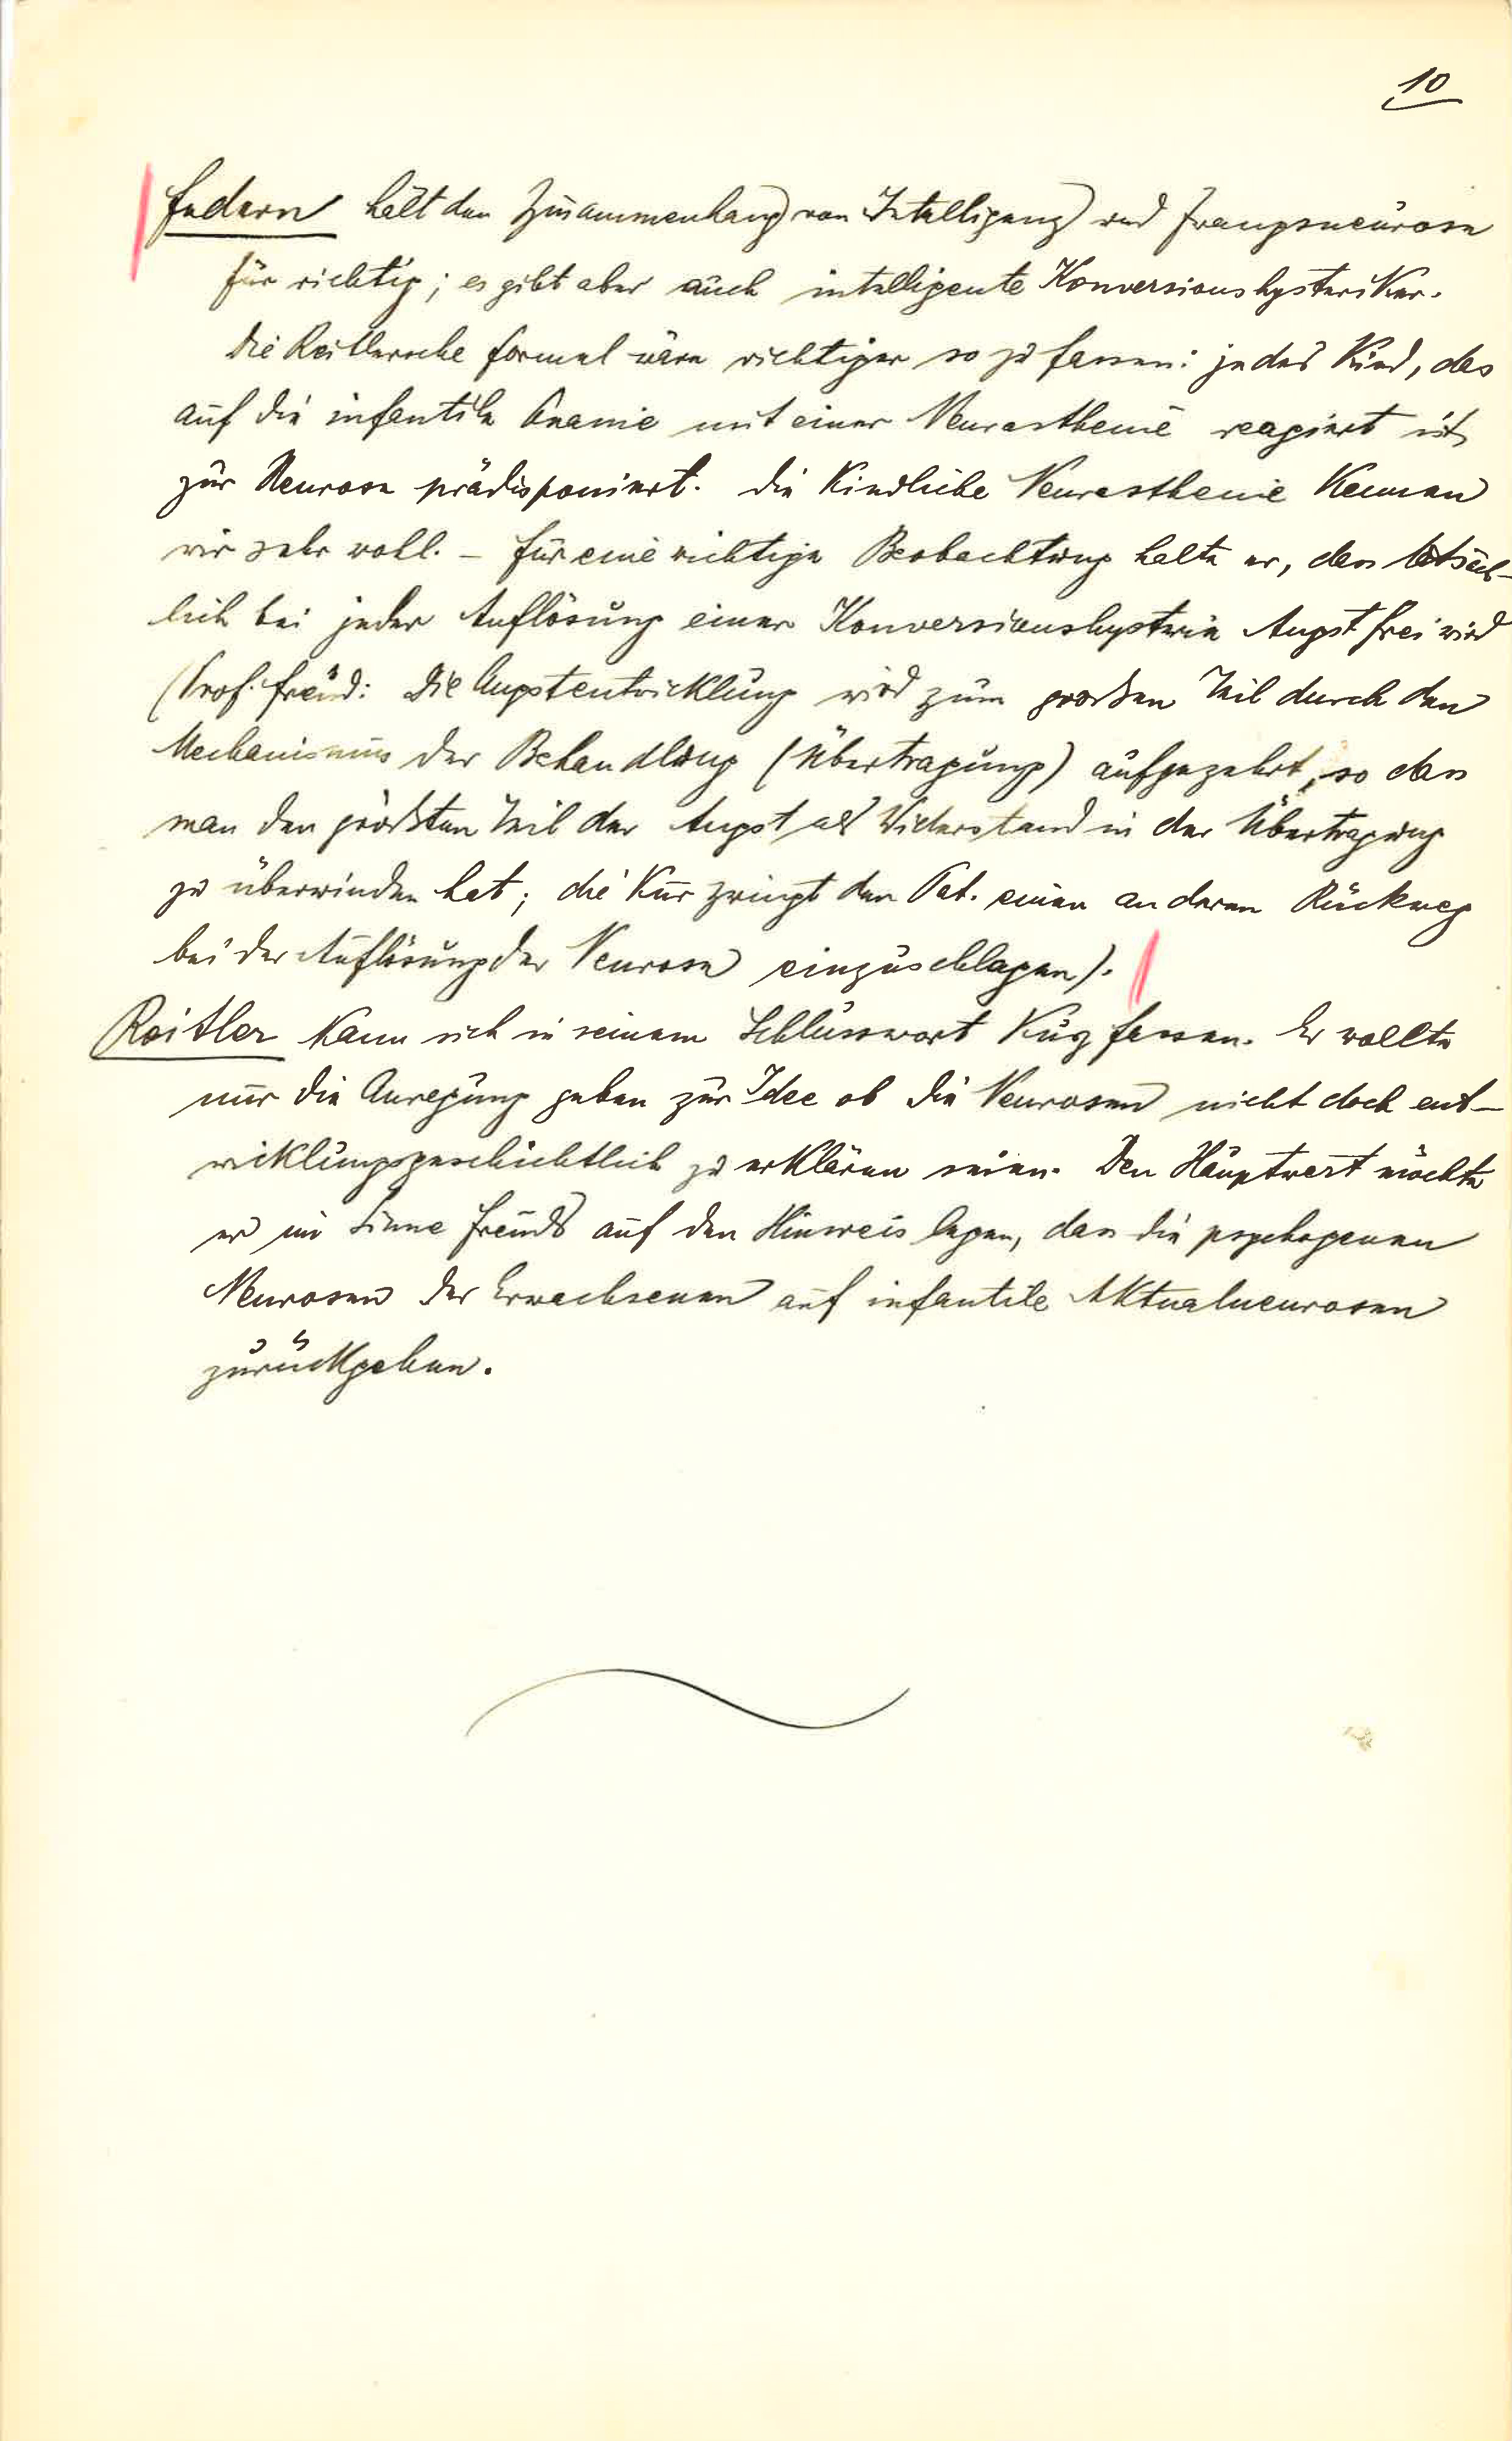 10
Federn hält den Zusammenhang von Intelligenz und Zwangsneurose
für richtig; es gibt aber auch intelligente Konversionshysteriker.
Die Reitlersche Formel wäre richtiger so zu fassen: jedes Kind, das
auf die infantile Onanie mit einer Neurasthenie reagiert ist
zur Neurose prädisponiert. Die kindliche Neurasthenie kennen
wir sehr wohl. – Für eine richtige Beobachtung halte er, dass tatsäch-
lich bei jeder Auflösung einer Konversionshysterie Angst frei wird
(Prof. Freud: Die Angstentwicklung wird zum großen Teil durch den
Mechanismus der Behandlung (Übertragung) aufgezehrt, so dass
man den größten Teil der Angst als Widerstand in der Übertragung
zu überwinden hat; die Kur zwingt den Pat. einen anderen Rückweg
bei der Auflösung der Neurose einzuschlagen).
Reitler kann sich in seinem Schlusswort kurz fassen. Er wollte
nur die Anregung geben zur Idee ob die Neurosen nicht doch ent-
wicklungsgeschichtlich zu erklären seien. Den Hauptwert möchte
er im Sinne Freuds auf den Hinweis legen, dass die psychogenen
Neurosen der Erwachsenen auf infantile Aktualneurosen
zurückgehen.